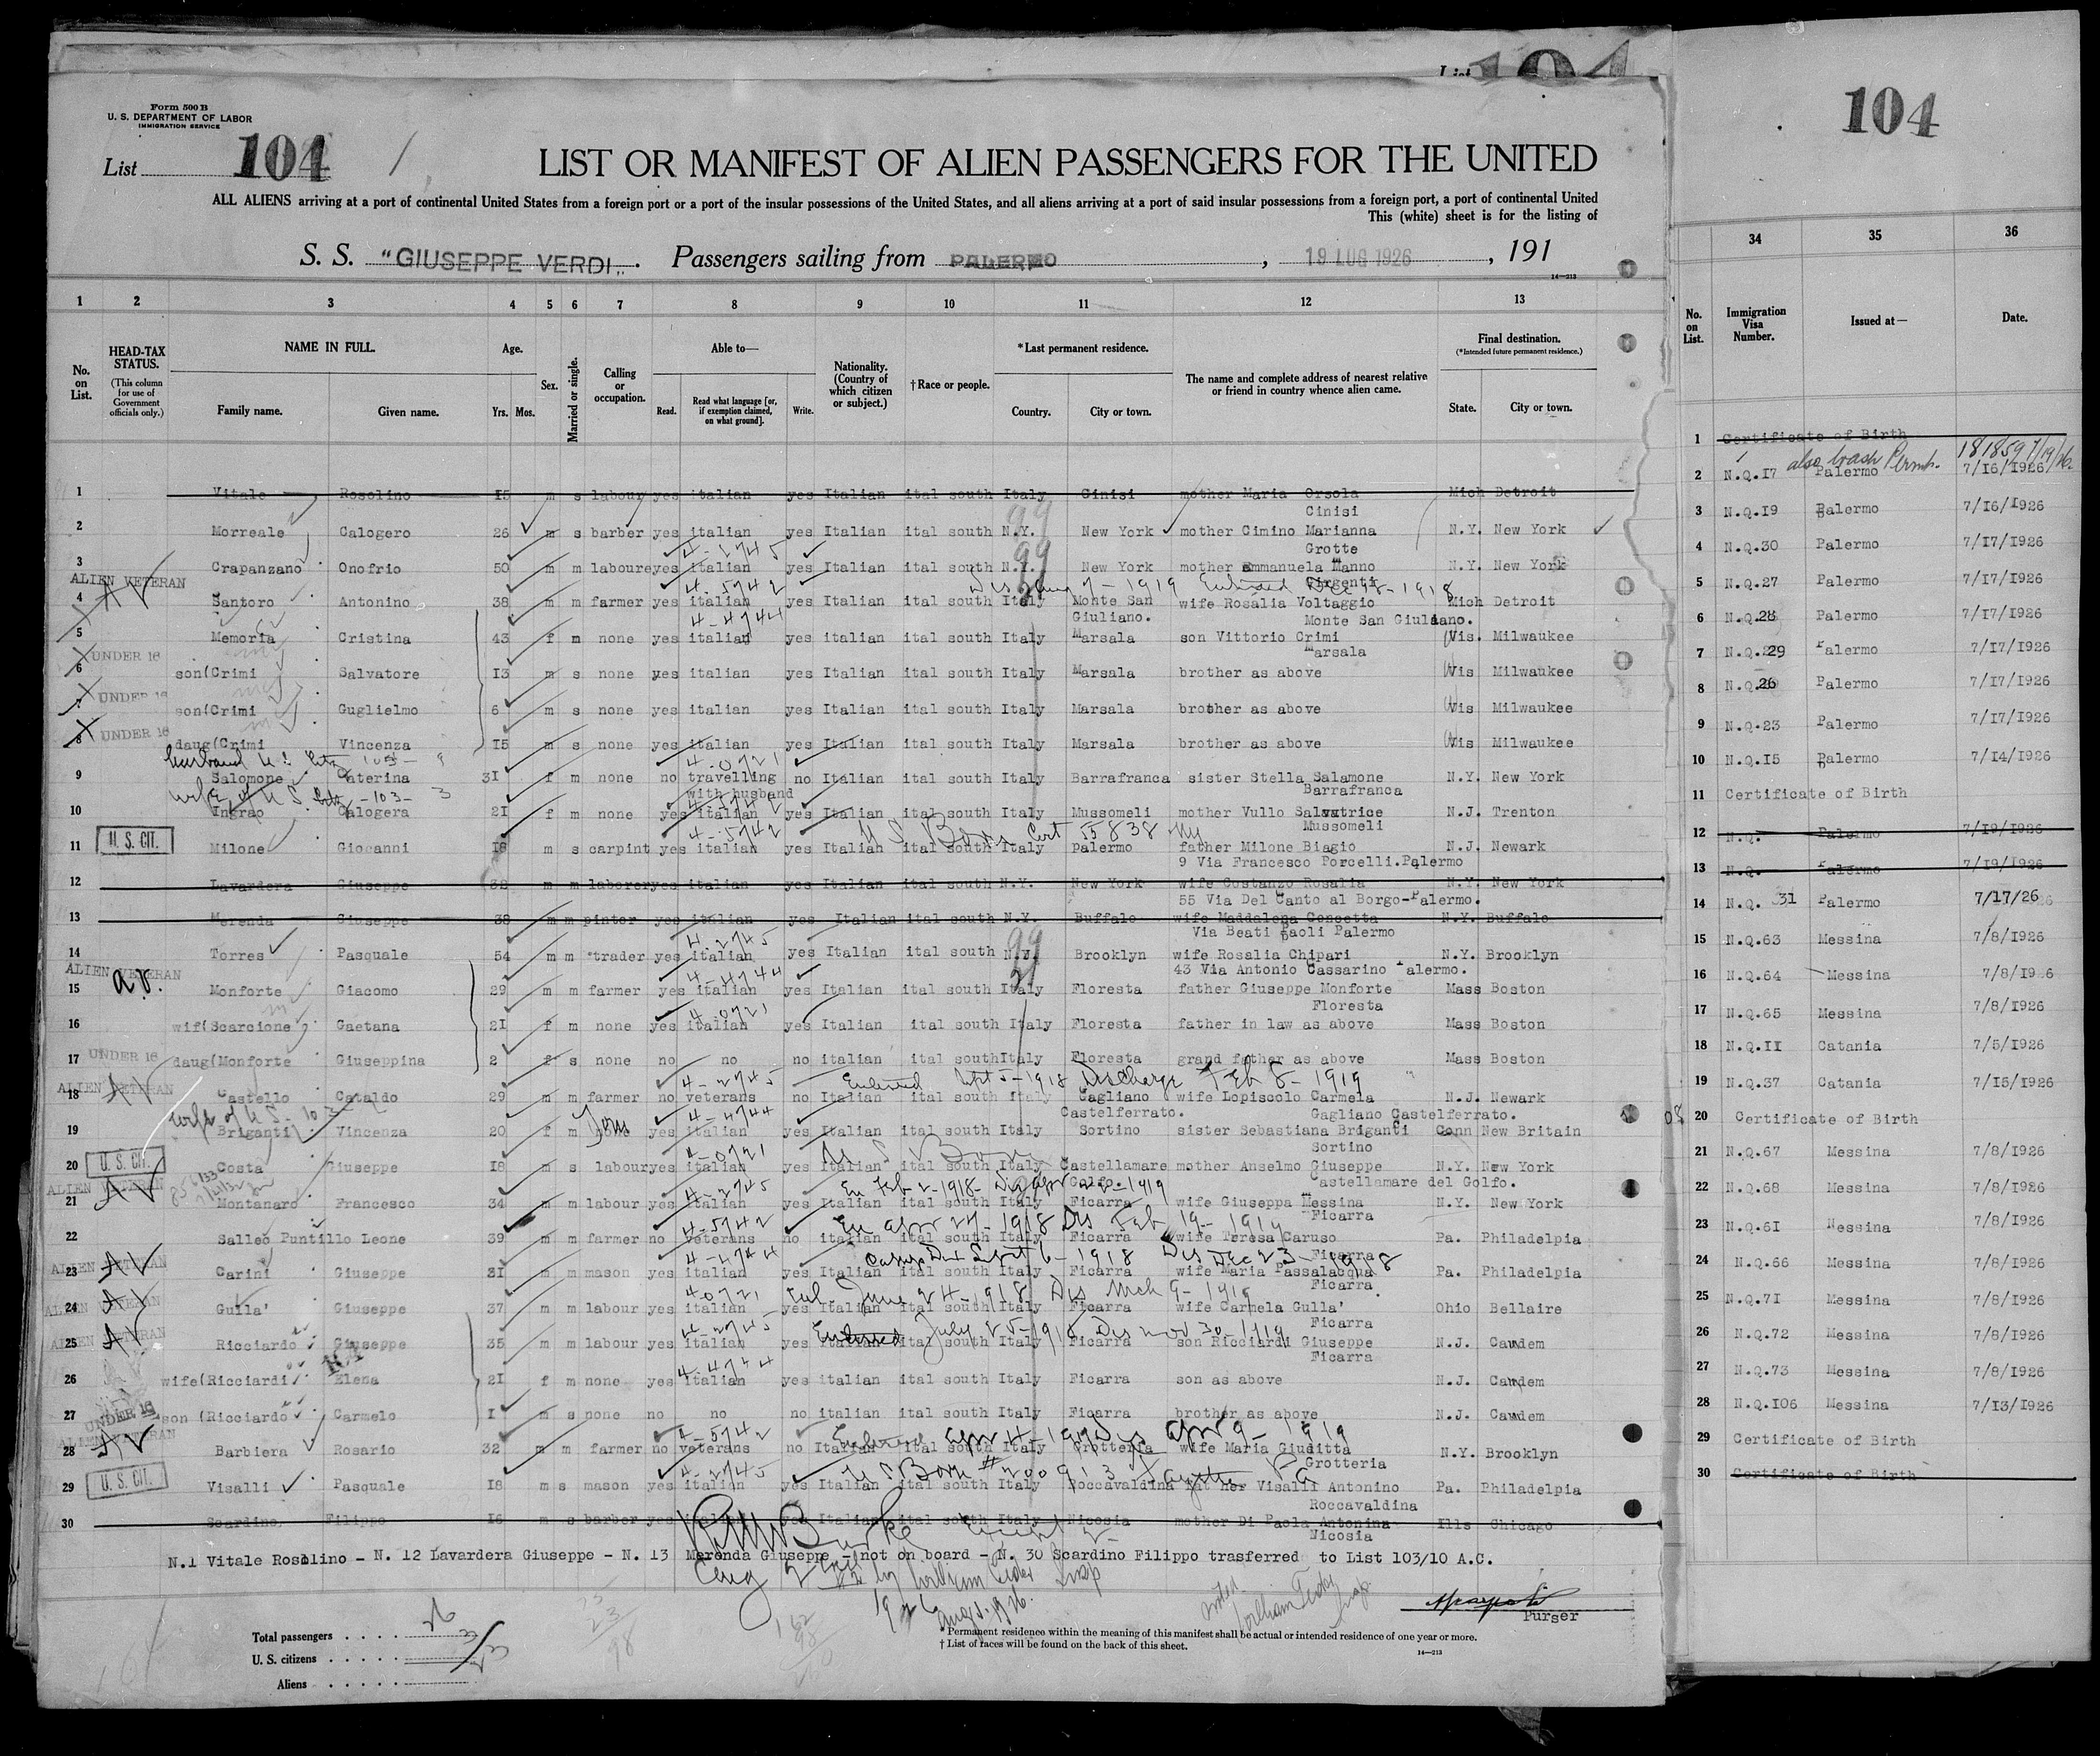 104
104
Form 500 B
U. S. DEPARTMENT OF LABOR
IMMIGRATION SERVICE
List 104
LIST OR MANIFEST OF ALIEN PASSENGERS FOR THE UNITED
ALL ALIENS arriving at a port of continental United States from a foreign port or a port of the insular possessions of the United States, and all aliens arriving at a port of said insular possessions from a foreign port, a port of continental United
This (white) sheet is for the listing of
S. S. "GIUSEPPE VERDI". Passengers sailing from PALERMO, 19 LUG 1926, 191
14—213
1 2 3 4 5 6 7 8 9 10 11 12 13
No. on List.
HEAD-TAX STATUS. (This column for use of Government officials only.)
NAME IN FULL.
Family name. Given name.
Age.
Yrs. Mos.
Sex.
Married or single.
Calling or occupation.
Able to—
Read. Read what language [or, if exemption claimed, on what ground]. Write.
Nationality. (Country of which citizen or subject.)
†Race or people.
*Last permanent residence.
Country. City or town.
The name and complete address of nearest relative or friend in country whence alien came.
Final destination.
(*Intended future permanent residence.)
State. City or town.
1 Vitale Rosolino 15 m s labour yes italian yes Italian ital south Italy Cinisi mother Maria Orsola Mich Detroit
Cinisi
2 Morreale Calogero 26 m s barber yes italian yes Italian ital south N.Y. New York mother Cimino Marianna N.Y. New York
Grotte
3 Crapanzano Onofrio 50 m m laboure yes italian yes Italian ital south N.Y. New York mother Emmanuela Manno N.Y. New York
Girgenti
ALIEN VETERAN
AV
4 Santoro Antonino 38 m m farmer yes italian yes Italian ital south Italy Monte San wife Rosalia Voltaggio Mich Detroit
Giuliano. Monte San Giuliano.
5 Memoria Cristina 43 f m none yes italian yes italian ital south Italy Marsala son Vittorio Crimi Wis. Milwaukee
Marsala
UNDER 16
6 son(Crimi Salvatore 13 m s none yes italian yes Italian ital south Italy Marsala brother as above Wis Milwaukee
UNDER 16
7 son(Crimi Guglielmo 6 m s none yes italian yes Italian ital south Italy Marsala brother as above Wis Milwaukee
UNDER 16
8 daug(Crimi Vincenza 15 m s none yes italian yes Italian ital south Italy Marsala brother as above Wis Milwaukee
9 Salomone Caterina 31 f m none no travelling no Italian ital south Italy Barrafranca sister Stella Salamone N.Y. New York
with husband Barrafranca
wife of U S. Citz -103- 3
10 Ingrao Calogera 21 f m none yes italian yes Italian ital south Italy Mussomeli mother Vullo Salvatrice N.J. Trenton
Mussomeli
U. S. CIT.
U S Born Cert 55838 Ny
11 Milone Giocanni 18 m s carpint yes italian yes Italian ital south Italy Palermo father Milone Biagio N.J. Newark
9 Via Francesco Porcelli.Palermo
12 Lavardera Giuseppe 32 m m laborer yes italian yes Italian ital south N.Y. New York wife Costanzo Rosalia N.Y. New York
55 Via Del Canto al Borgo-Palermo.
13 Merenda Giuseppe 38 m m pinter yes italian yes Italian ital south N.Y. Buffalo wife Maddalena Concetta N.Y. Buffalo
Via Beati Paoli Palermo
14 Torres Pasquale 54 m m trader yes italian yes Italian ital south N.Y. Brooklyn wife Rosalia Chipari N.Y. Brooklyn
43 Via Antonio Cassarino Palermo.
ALIEN VETERAN
A.V.
15 Monforte Giacomo 29 m m farmer yes italian yes Italian ital south Italy Floresta father Giuseppe Monforte Mass Boston
Floresta
16 wif(Scarcione Gaetana 21 f m none yes italian yes Italian ital south Italy Floresta father in law as above Mass Boston
UNDER 16
17 daug(Monforte Giuseppina 2 f s none no no no italian ital south Italy Floresta grand father as above Mass Boston
ALIEN VETERAN
AV
Enlisted Sept 5-1918 Discharge Feb 8- 1919
18 Castello Cataldo 29 m m farmer no veterans no Italian ital south Italy Gagliano wife Lopiscolo Carmela N.J. Newark
Castelferrato. Gagliano Castelferrato.
19 Briganti Vincenza 20 f m none yes italian yes Italian ital south Italy Sortino sister Sebastiana Briganti Conn New Britain
Sortino
U. S. CIT.
U S Born
20 Costa Giuseppe 18 m s labour yes italian yes Italian ital south Italy Castellamare mother Anselmo Giuseppe N.Y. New York
Golfo. Castellamare del Golfo.
ALIEN VETERAN
AV
21 Montanaro Francesco 34 m m labour yes italian yes Italian ital south Italy Ficarra wife Giuseppa Messina N.Y. New York
Ficarra
En Apr 27- 1918 Dis Feb 19- 1919
22 Salleo Puntillo Leone 39 m m farmer no veterans no italian ital south Italy Ficarra wife Teresa Caruso Pa. Philadelpia
Ficarra
ALIEN VETERAN
AV
23 Carini Giuseppe 31 m m mason yes italian yes Italian ital south Italy Ficarra wife Maria Passalacqua Pa. Philadelpia
Ficarra
ALIEN VETERAN
AV
Enl. June 24-1918 Dis Mch 9- 1919
24 Gulla' Giuseppe 37 m m labour yes italian yes Italian ital south Italy Ficarra wife Carmela Gulla' Ohio Bellaire
Ficarra
ALIEN VETERAN
AV
25 Ricciardo Giuseppe 35 m m labour yes italian yes Italian ital south Italy Ficarra son Ricciardi Giuseppe N.J. Camdem
Ficarra
26 wife(Ricciardi Elena 21 f m none yes italian yes italian ital south Italy Ficarra son as above N.J. Camdem
UNDER 16
27 son (Ricciardo Carmelo 1 m s none no no no italian ital south Italy Ficarra brother as above N.J. Camdem
ALIEN VETERAN
AV
28 Barbiera Rosario 32 m m farmer no veterans no Italian ital south Italy Grotteria wife Maria Giuditta N.Y. Brooklyn
Grotteria
U. S. CIT.
29 Visalli Pasquale 18 m s mason yes italian yes Italian ital south Italy Roccavaldina father Visalli Antonino Pa. Philadelpia
Roccavaldina
30 Scardino Filippo 16 m s barber yes italian yes Italian ital south Italy Nicosia mother Di Paola Antonina Ills Chicago
Nicosia
N.1 Vitale Rosolino - N. 12 Lavardera Giuseppe - N. 13 Merenda Giuseppe - not on board - N. 30 Scardino Filippo trasferred to List 103/10 A.C.
Purser
Total passengers
U. S. citizens
Aliens
* Permanent residence within the meaning of this manifest shall be actual or intended residence of one year or more.
† List of races will be found on the back of this sheet.
14—213
34 35 36
No. on List.
Immigration Visa Number.
Issued at—
Date.
1 Certificate of Birth
181859 7/19/26
2 N.Q.17 Palermo 7/16/1926
3 N.Q.19 Palermo 7/16/1926
4 N.Q.30 Palermo 7/17/1926
5 N.Q.27 Palermo 7/17/1926
6 N.Q.28 Palermo 7/17/1926
7 N.Q.29 Palermo 7/17/1926
8 N.Q.26 Palermo 7/17/1926
9 N.Q.23 Palermo 7/17/1926
10 N.Q.15 Palermo 7/14/1926
11 Certificate of Birth
12 N.Q. Palermo 7/19/1926
13 N.Q. Palermo 7/19/1926
14 N.Q. 31 Palermo 7/17/26
15 N.Q.63 Messina 7/8/1926
16 N.Q.64 Messina 7/8/1926
17 N.Q.65 Messina 7/8/1926
18 N.Q.11 Catania 7/5/1926
19 N.Q.37 Catania 7/15/1926
20 Certificate of Birth
21 N.Q.67 Messina 7/8/1926
22 N.Q.68 Messina 7/8/1926
23 N.Q.61 Messina 7/8/1926
24 N.Q.66 Messina 7/8/1926
25 N.Q.71 Messina 7/8/1926
26 N.Q.72 Messina 7/8/1926
27 N.Q.73 Messina 7/8/1926
28 N.Q.106 Messina 7/13/1926
29 Certificate of Birth
30 Certificate of Birth